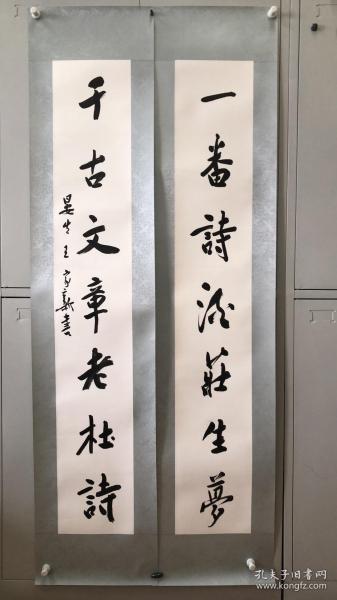 一番詩莊生夢
千古文章老杜詩
王家新書
孔夫子旧书网
www.kongfz.com